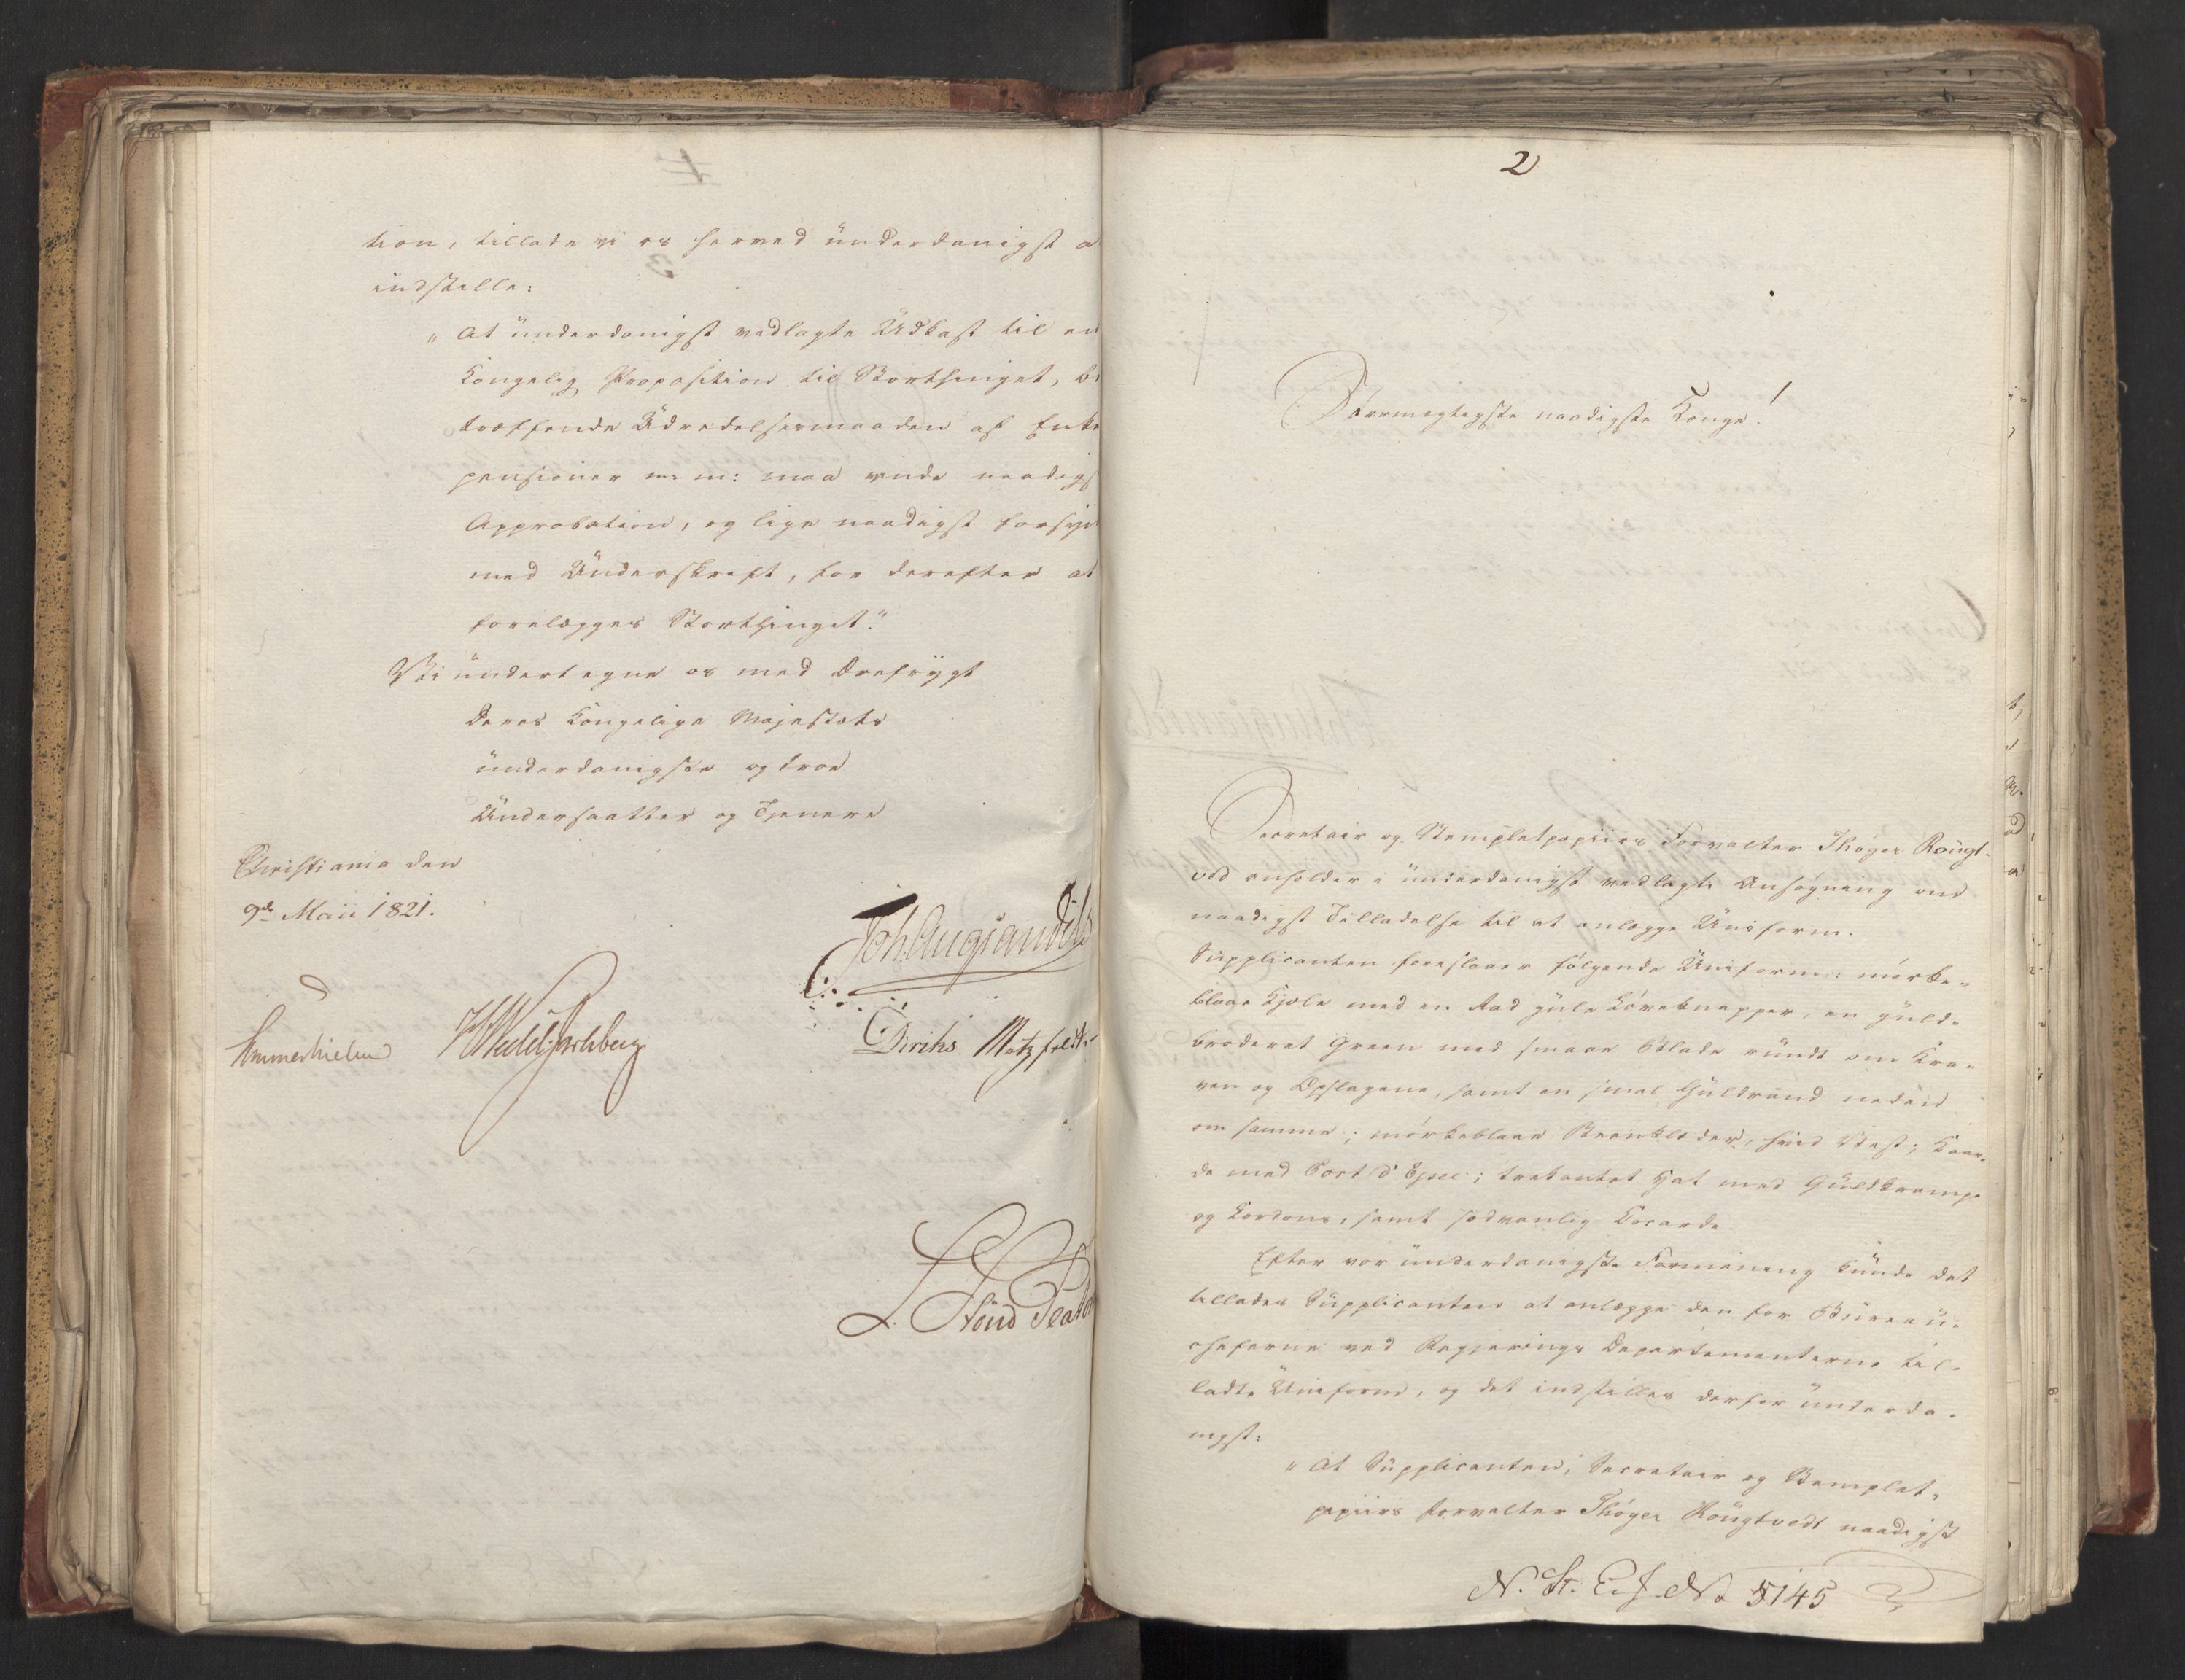 tion, tillade vi os herved ünderdanigst a
indstille:
„ At ünderdanigst vedlagte Üdkast til en
Kongelig Proposition til Storthinget, be
træffende Üdredelsesmaaden af Enke
pensioner m. m: maa vinde naadigs
Approbation, og lige naadigst forsyn
med Ünderskrift, for derefter at
forelægges Storthinget."
Vi ündertegne os med Ærefrygt
Deres Kongelige Majestæts
ünderdanigste og troe
Ündersaatter og Tjenere
Christiania den
9de Maii 1821.
Joh. Aug Sandels
Sommerhielm HWedel Jarlsberg Diriks Motzfeldt
L. Stoud Platou
2
Stormægtigste naadigste Konge!
Secretair og Stempletpapiirs Forvalter Thøger Röugt-
ved anholder i ünderdanigst vedlagte Ansøgning om
naadigst Tilladelse til at anlægge Üniform.
Süpplicanten foreslaaer følgende Üniform: mörke-
blaae Kjole med en Rad güle Løveknapper, en güld-
broderet Green med smaae Blade ründt om Kra-
ven og Opslagene, samt en smal Güldrand neden
om samme; mørkeblaae Beenklæder, hvid Vest; Kaar-
de med Port d'Epee; trekantet Hat med Güldkrampe
og Cordons, samt sædvanlig Cocarde.
Efter vor ünderdanigste Formening künde det
tillades Süpplicanten at anlægge den for Büreaü-
cheferne ved Regjerings Departementerne til-
ladte Üniform, og det indstilles derfor ünderda-
nigst:
„ At Süpplicanten, Secretair og Stemplet-
papiirs forvalter Thøger Röugtvedt naadigst
N. St. E. J. No 5145